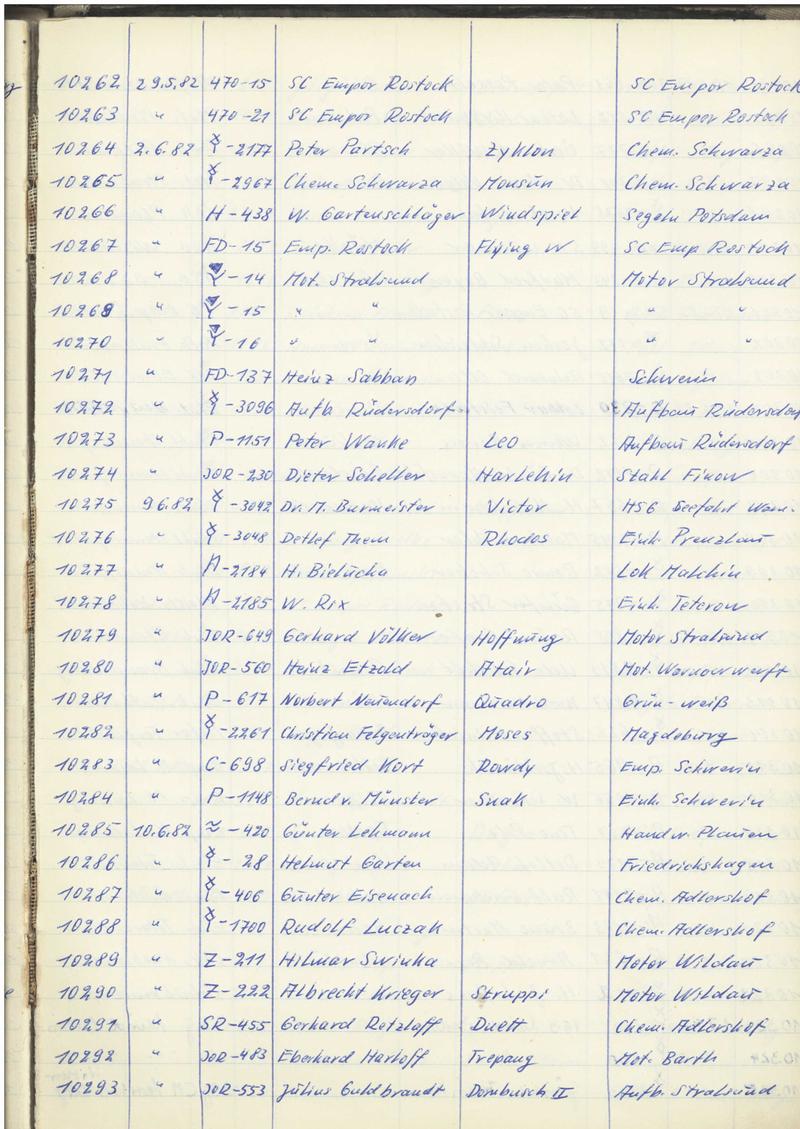 10262 29.5.82 470-15 SC Empor Rostock SC Empor Rostock
10263 " 470-21 SC Empor Rostock SC Empor Rostock
10264 2.6.82 -2177 Peter Partsch Zyklon Chem. Schwarza
10265 " -2967 Chem. Schwarza Monsun Chem. Schwarza
10266 " H-438 W. Gartenschläger Windspiel Segeln Potsdam
10267 " FD-15 Emp. Rostock Flying W SC Emp Rostock
10268 " -14 Mot. Stralsund Motor Stralsund
10269 " -15 " " " "
10270 " -16 " " " "
10271 " FD-137 Heinz Sabban Schwerin
10272 " -3096 Aufb. Rüdersdorf Aufbau Rüdersdorf
10273 " P-1151 Peter Wanke Leo Aufbau Rüdersdorf
10274 " JOR-230 Dieter Scheller Harlekin Stahl Finow
10275 9.6.82 -3042 Dr. M. Burmeister Victor HSG Seefahrt Warn.
10276 " -3048 Detlef Them Rhodos Einh. Prenzlau
10277 " -2184 H. Bielucha Lok Malchin
10278 " -2185 W. Rix Einh. Teterow
10279 " JOR-649 Gerhard Völker Hoffnung Motor Stralsund
10280 " JOR-560 Heinz Etzold Atair Mot. Warnowwerft
10281 " P-617 Norbert Neuendorf Quadro Grün-weiß
10282 " -2261 Christian Felgenträger Moses Magdeburg
10283 " C-698 Siegfried Kort Rowdy Emp. Schwerin
10284 " P-1148 Bernd v. Münster Snak Einh. Schwerin
10285 10.6.82 ≈-420 Günter Lehmann Handw. Plauen
10286 " -28 Helmut Garten Friedrichshagen
10287 " -406 Günter Eisenach Chem. Adlershof
10288 " -1700 Rudolf Luczak Chem. Adlershof
10289 " Z-211 Hilmar Swinka Motor Wildau
10290 " Z-222 Albrecht Krieger Struppi Motor Wildau
10291 " SR-455 Gerhard Retzlaff Duett Chem. Adlershof
10292 " JOR-483 Eberhard Harloff Trepang Mot. Barth
10293 " JOR-553 Julius Guldbrandt Dornbusch II Aufb. Stralsund